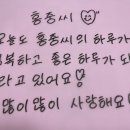 홍중씨
오늘도 홍중씨의 하루가
행복하고 좋은 하루가 되
라고 있어요
많이많이 사랑해요